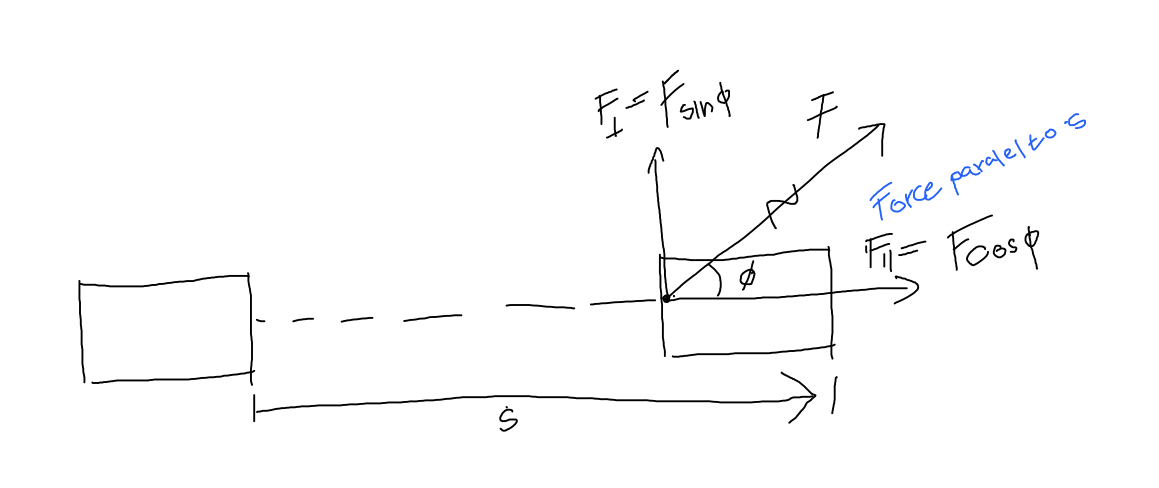 F⊥ = F sinϕ
F
Force paralel to s
F∥ = F cosϕ
ϕ
s